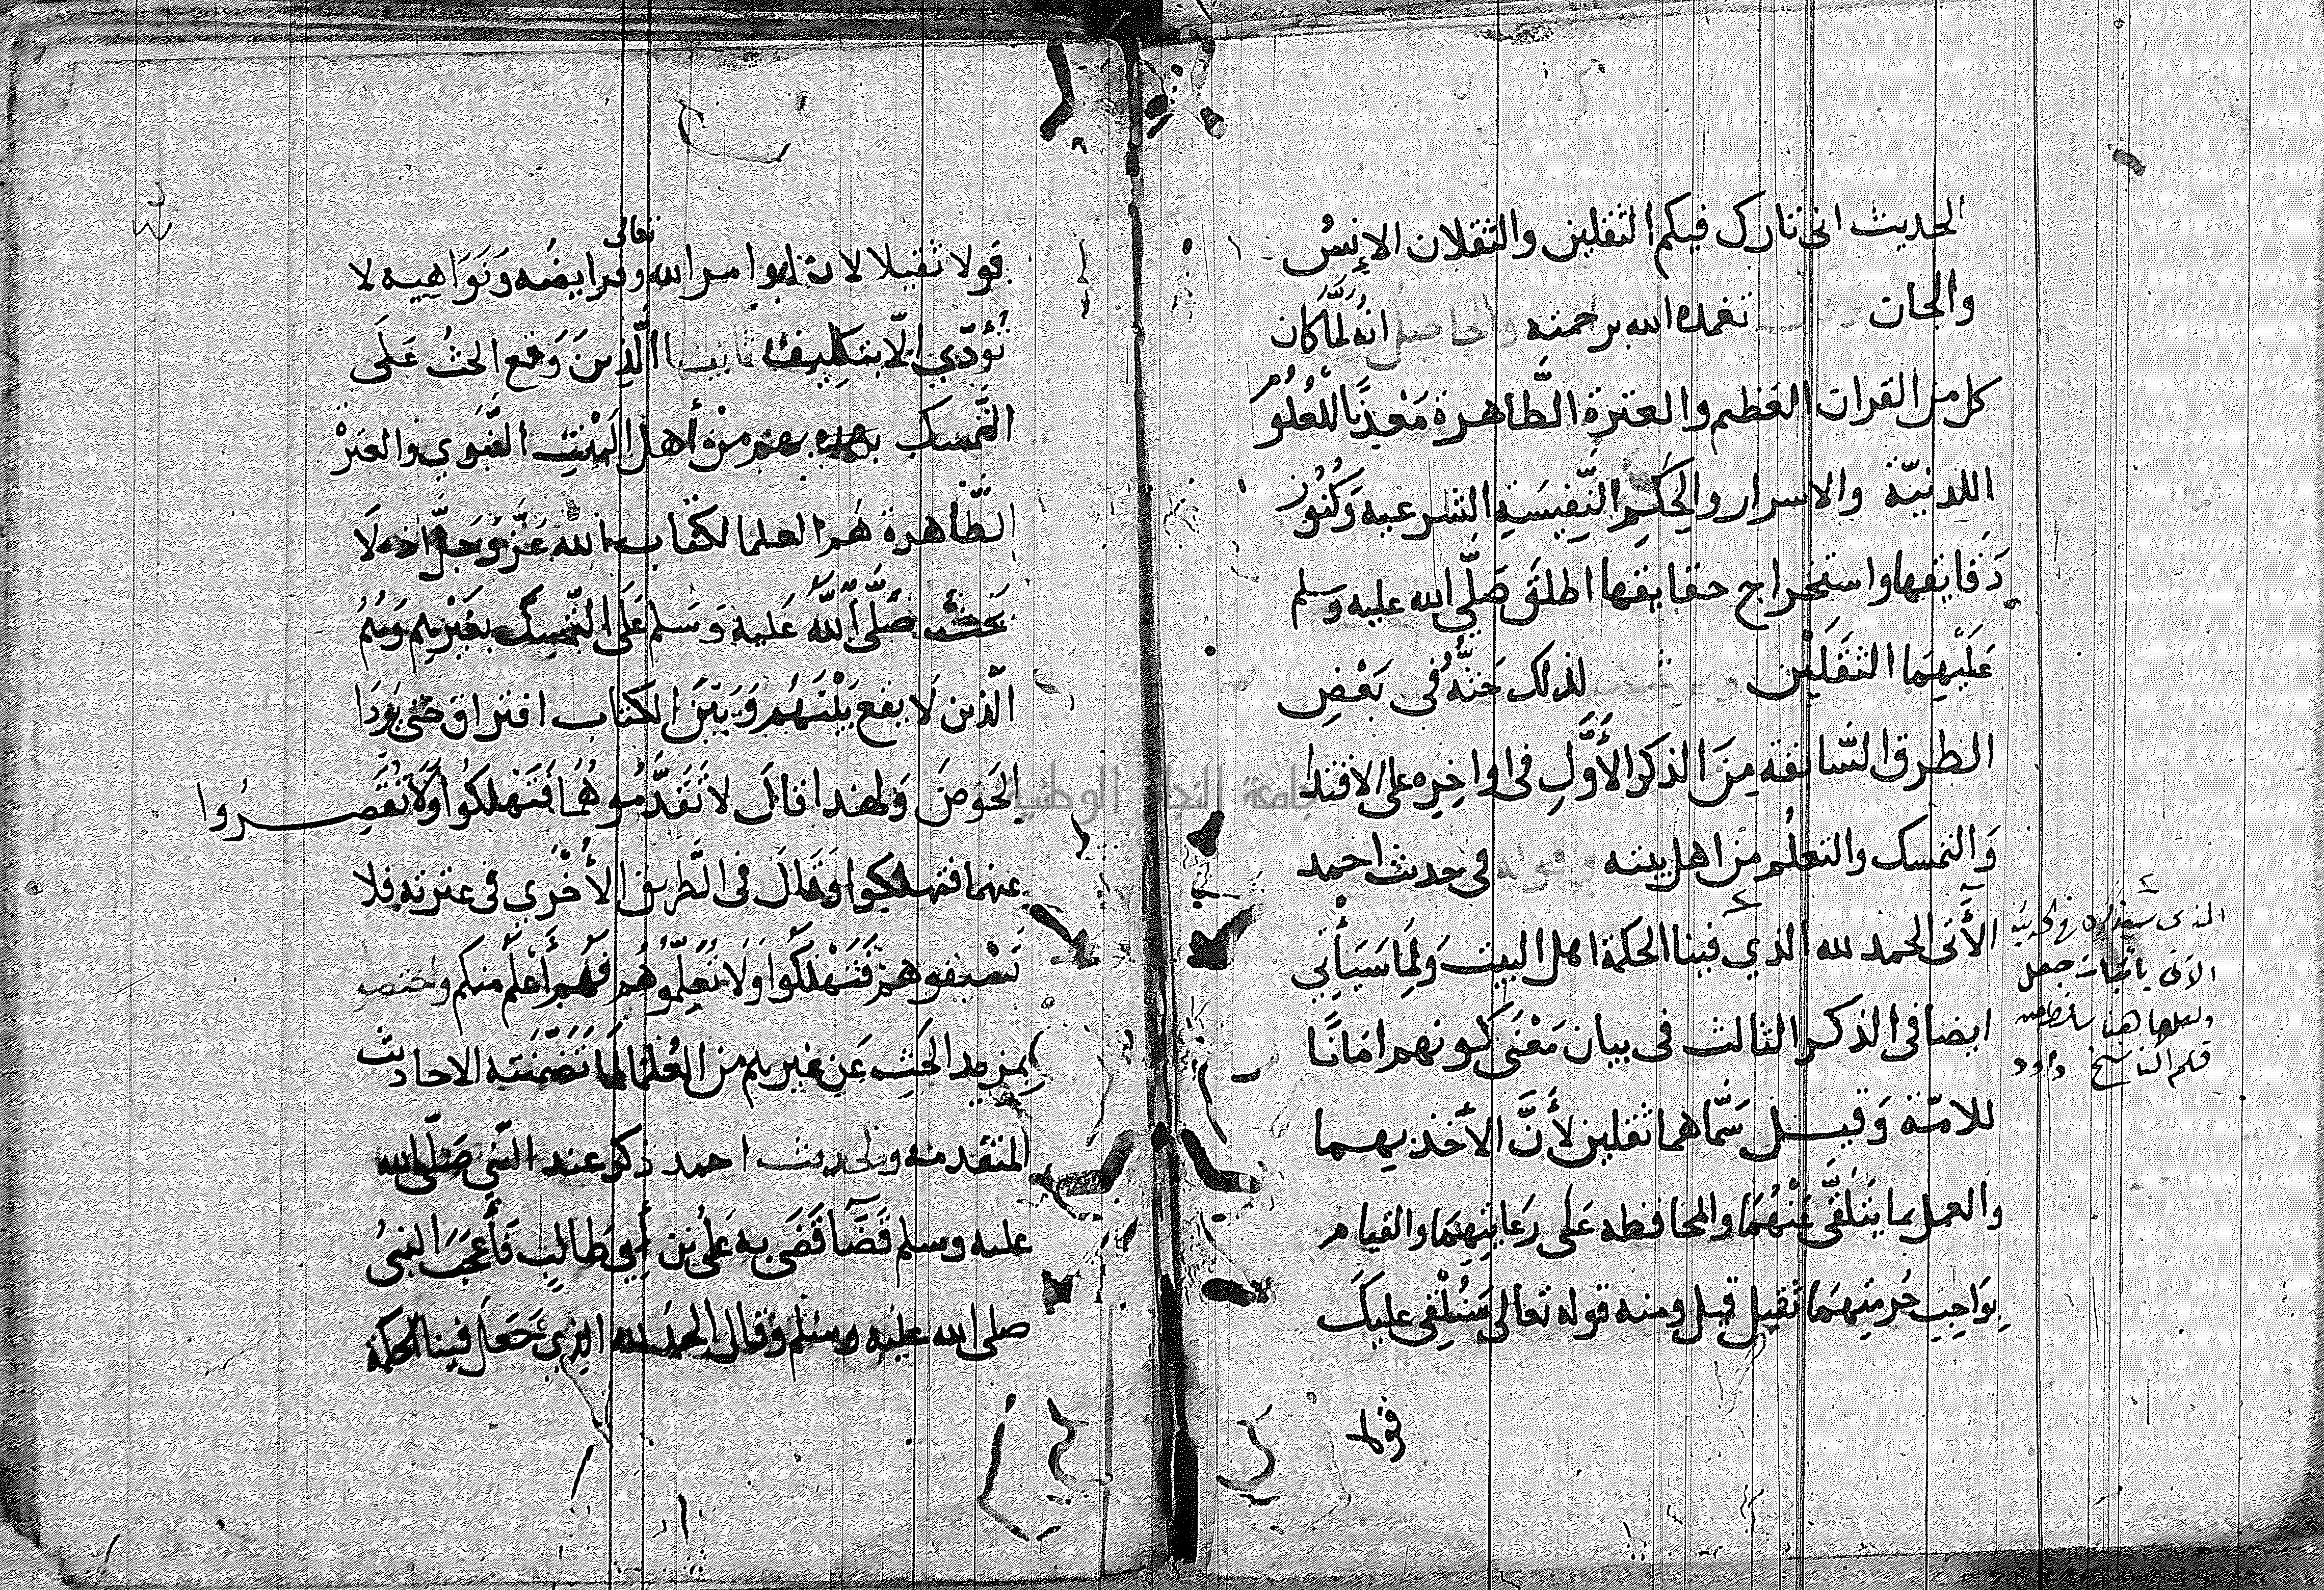 الحديث اني تارك فيكم الثقلين والثقلان الإنسُ
والجان وقال تغمده الله برحمته والحاصل انّه لَمَّا كان
كل من القران العَظيم والعترة الطَّاهرة مَعْدِنًا للعُلُوم
اللدنيّة والاسرار والحِكَمِ النَّفِيسَةِ الشرعيه وَكُنُوز
دَقايقها واستخراج حقايقها اطلقَ صَلّى الله عليه وسلم
عَلَيْهِمَا الثقَلَيْن ويرشد لذلك حَثُّهُ في بَعْضِ
الطرق السَّابقة مِنَ الذكر الأَوَّلِ في اواخِرِه على الاقتدا
وَالتمسك والتعلُم مِنْ اهل بيته وقوله في حديث احمد
الأتى الحمد لله الذي فينا الحكمة اهل البيت وَلِمَا سَيَأْتي
ايضا في الذكر الثالث في بيان مَعْنَى كونهم امَانًا
للامّة وَقيل سَمَّاهما ثقلين لأَنَّ الأخذ بهما
والعمل بما يتَلقَّى عَنْهُمَا والمحافظه عَلى رعَايتِهمَا والقيام
بِوَاجِبِ حُرمتِهمَا ثقيل قيل ومنه قوله تعالى سَنُلْقِي عليكَ
قولا
الذى سيذكره في الحديث
الاتى باثبات جعل
ولعلها هنا ساقطة من
قلم الناسخ داود
جامعة النجاح الوطنية
تعالى
قولا ثقيلا لان اوامر الله وفرايضَه وَنَوَاهِيه لا
تُؤدّي الّا بتكليف الّذِينَ وَقع الحثُ عَلَى
التَّمسك بهم مِنْ أهل البَيْتِ النَّبَوي والعترْ
الطَّاهرة هُم العلما لكتاب الله عَزَّوَجلَّ اذ لَا
يَحُثُّ صَلَّى اللَّهُ عَلَيه وَسَلم عَلَى التّمسك بِغَيْرهِم وَهُمُ
الّذين لَا يقع بَيْنَهُم وَبَيْنَ الكتاب افتراق حتى يَردَا
الحَوضَ وَلهذا قالَ لا تَقَدَّمُوهُمَا فَتَهْلكُوا وَلَا تُقَصِّرُوا
عنهما فتهلكوا وَقَالَ في الطَّريق الأُخْرَى في عترته فلا
تَسْبِقوهم فَتَهْلَكُوا وَلَا تُعَلِّمُوهُم فَهُم أَعْلَمُ منكم واختصوا
بمزيد الحَثِّ عَن غيرهم من العُلمَا لِمَا تَضَمَّنَتْه الاحاديث
المتقدمه ولحديث احمد ذكر عند النّبي صَلّى الله
عليه وسلم قَضًا قَضَى به عَلى بْن أَبِي طَالبٍ فَأَعْجَبَ النبيُ
صلى الله عليه وسلم وقال الحمدُ لله الذِي جَعَلَ فينا الحكمة